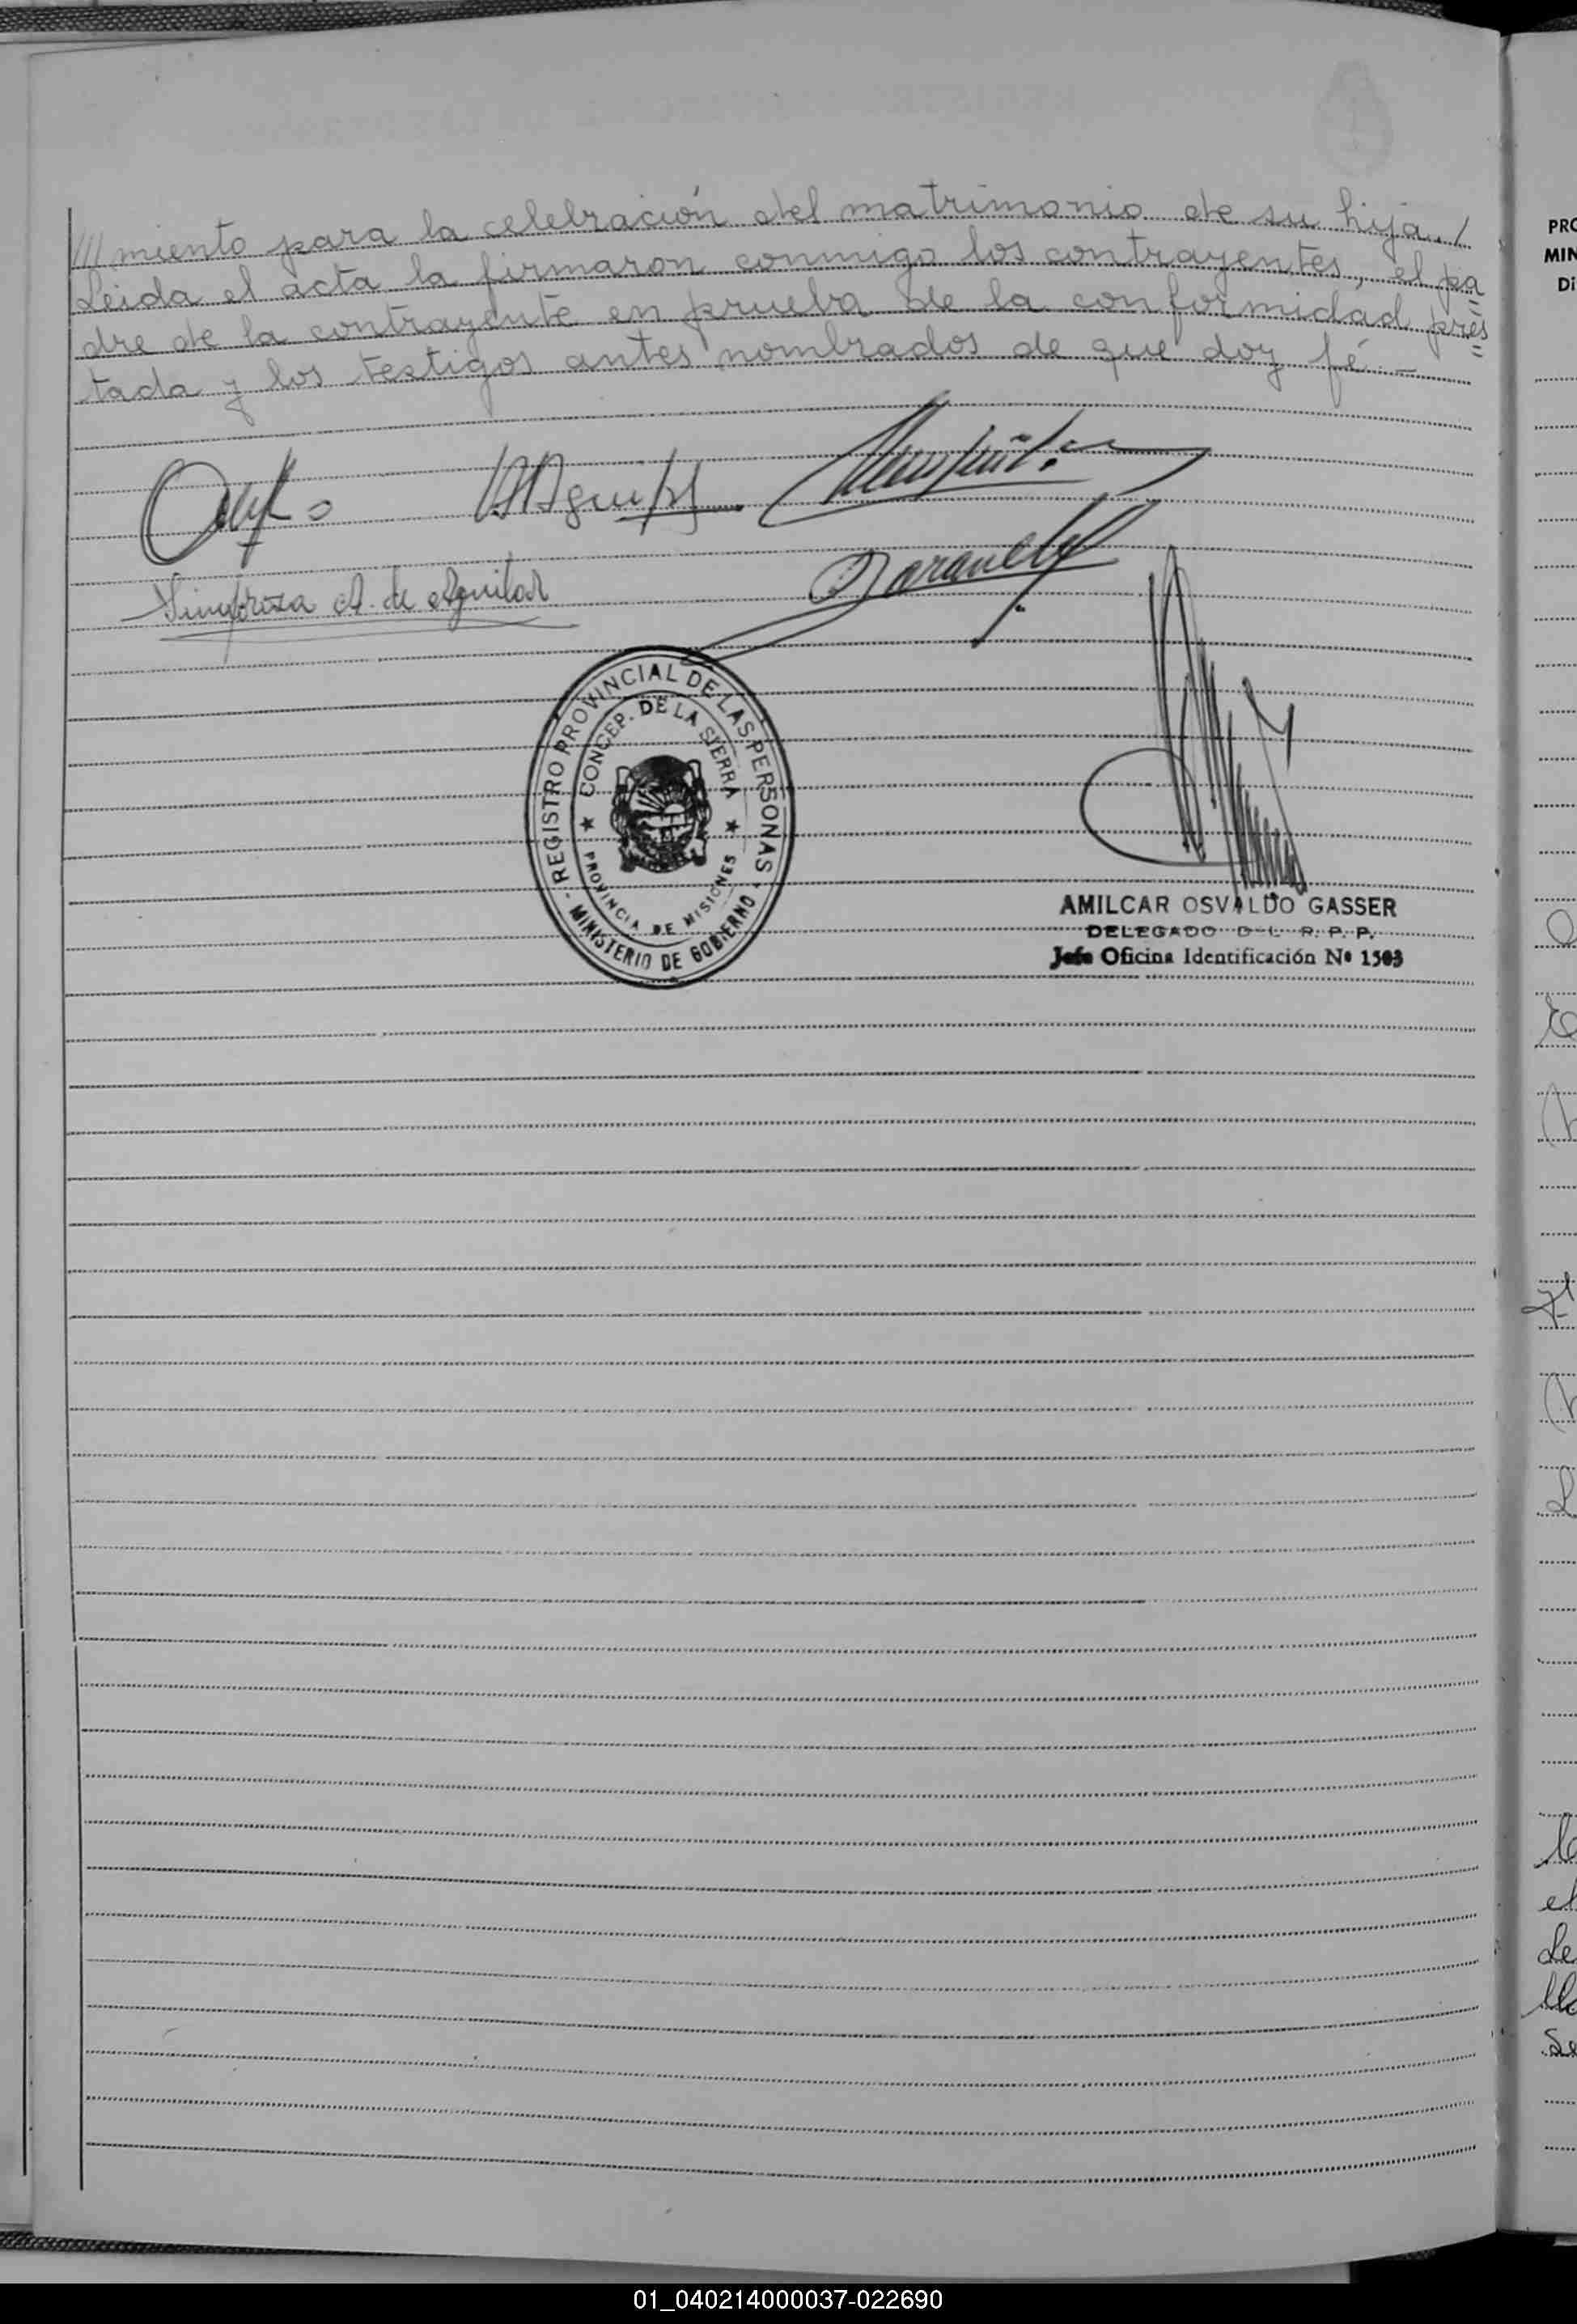 ///miento para la celebración del matrimonio de su hija../
Leida el acta la firmaron conmigo los contrayentes, el pa=
dre de la contrayente en prueba de la conformidad pres=
tada y los testigos antes nombrados de que doy fé.-
A. de Aguilar
REGISTRO PROVINCIAL DE LAS PERSONAS
- MINISTERIO DE GOBIERNO -
★ CONCEP. DE LA SIERRA ★
PROVINCIA DE MISIONES
AMILCAR OSVALDO GASSER
DELEGADO D L R. P. P.
Jefe Oficina Identificación Nº 1503
PRO
MIN
Di
01_040214000037-022690